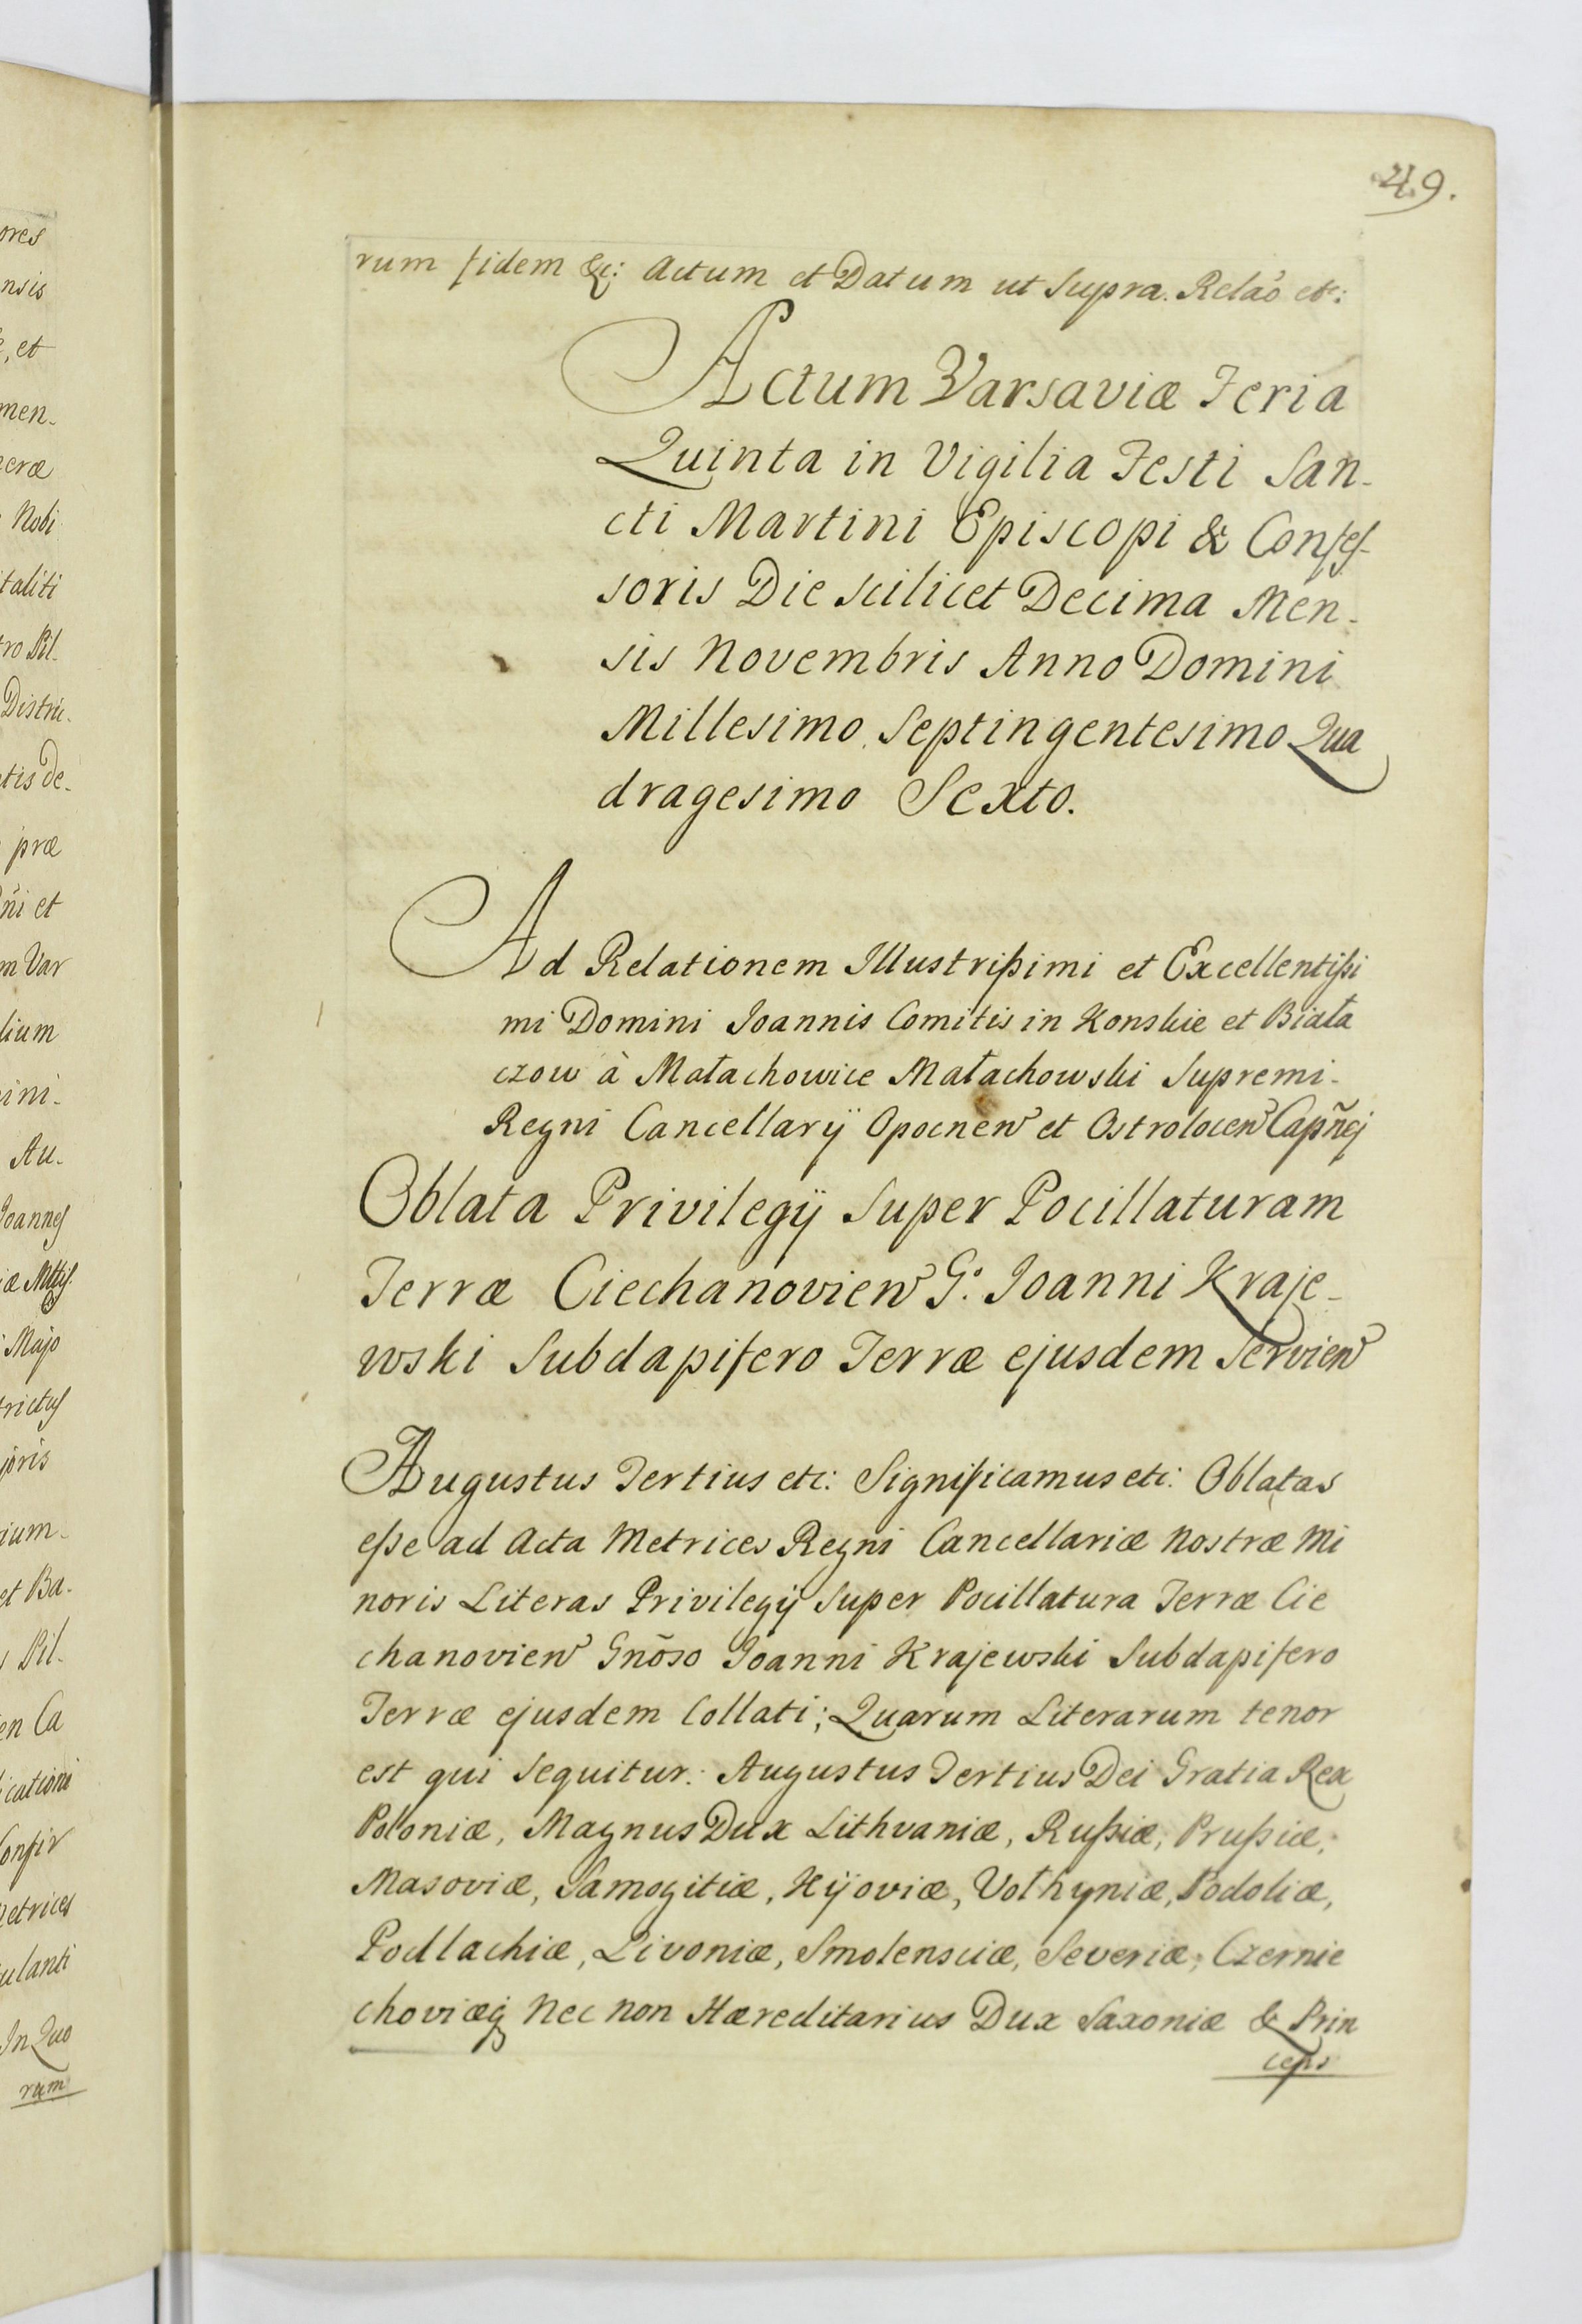 ores
nsis
, et
men-
eræ
Nobi
taliti
tro Pil-
Distri-
tis de-
præ
ñi et
m Var
lium
ini-
Au-
Joannes
Majo
trictus
joris
ium-
et Ba-
Pil-
en Ca
icationi
Confir
etrices
ulanti
In Quo
rum
49.
rum fidem &c: Actum et Datum ut Supra. Relaõ etc:
Actum Varsaviæ Feria
Quinta in Vigilia Festi San-
cti Martini Episcopi & Confes-
soris Die scilicet Decima Men-
sis Novembris Anno Domini
Millesimo Septingentesimo Qua
dragesimo Sexto.
Ad Relationem Illustrißimi et Excellentißi
mi Domini Joannis Comitis in Konskie et Biała
czow à Małachowice Małachowski Supremi-
Regni Cancellarÿ Opocnen et Ostrolocen Capñej
Oblata Privilegÿ Super Pocillaturam
Terræ Ciechanovien G: Joanni Kraje-
wski Subdapifero Terræ ejusdem Servien
Augustus Tertius etc: Significamus etc: Oblatas
eße ad Acta Metrices Regni Cancellariæ Nostræ Mi
noris Literas Privilegÿ Super Pocillatura Terræ Cie
chanovien Gnõso Joanni Krajewski Subdapifero
Terræ ejusdem Collati; Quarum Literarum tenor
est qui sequitur: Augustus Tertius Dei Gratia Rex
Poloniæ, Magnus Dux Lithvaniæ, Rußiæ, Prußiæ,
Masoviæ, Samogitiæ, Kÿoviæ, Vołhyniæ, Podoliæ,
Podlachiæ, Livoniæ, Smolensciæ, Severiæ, Czernie
choviæq Nec non Hæreditarius Dux Saxoniæ & Prin
ceps